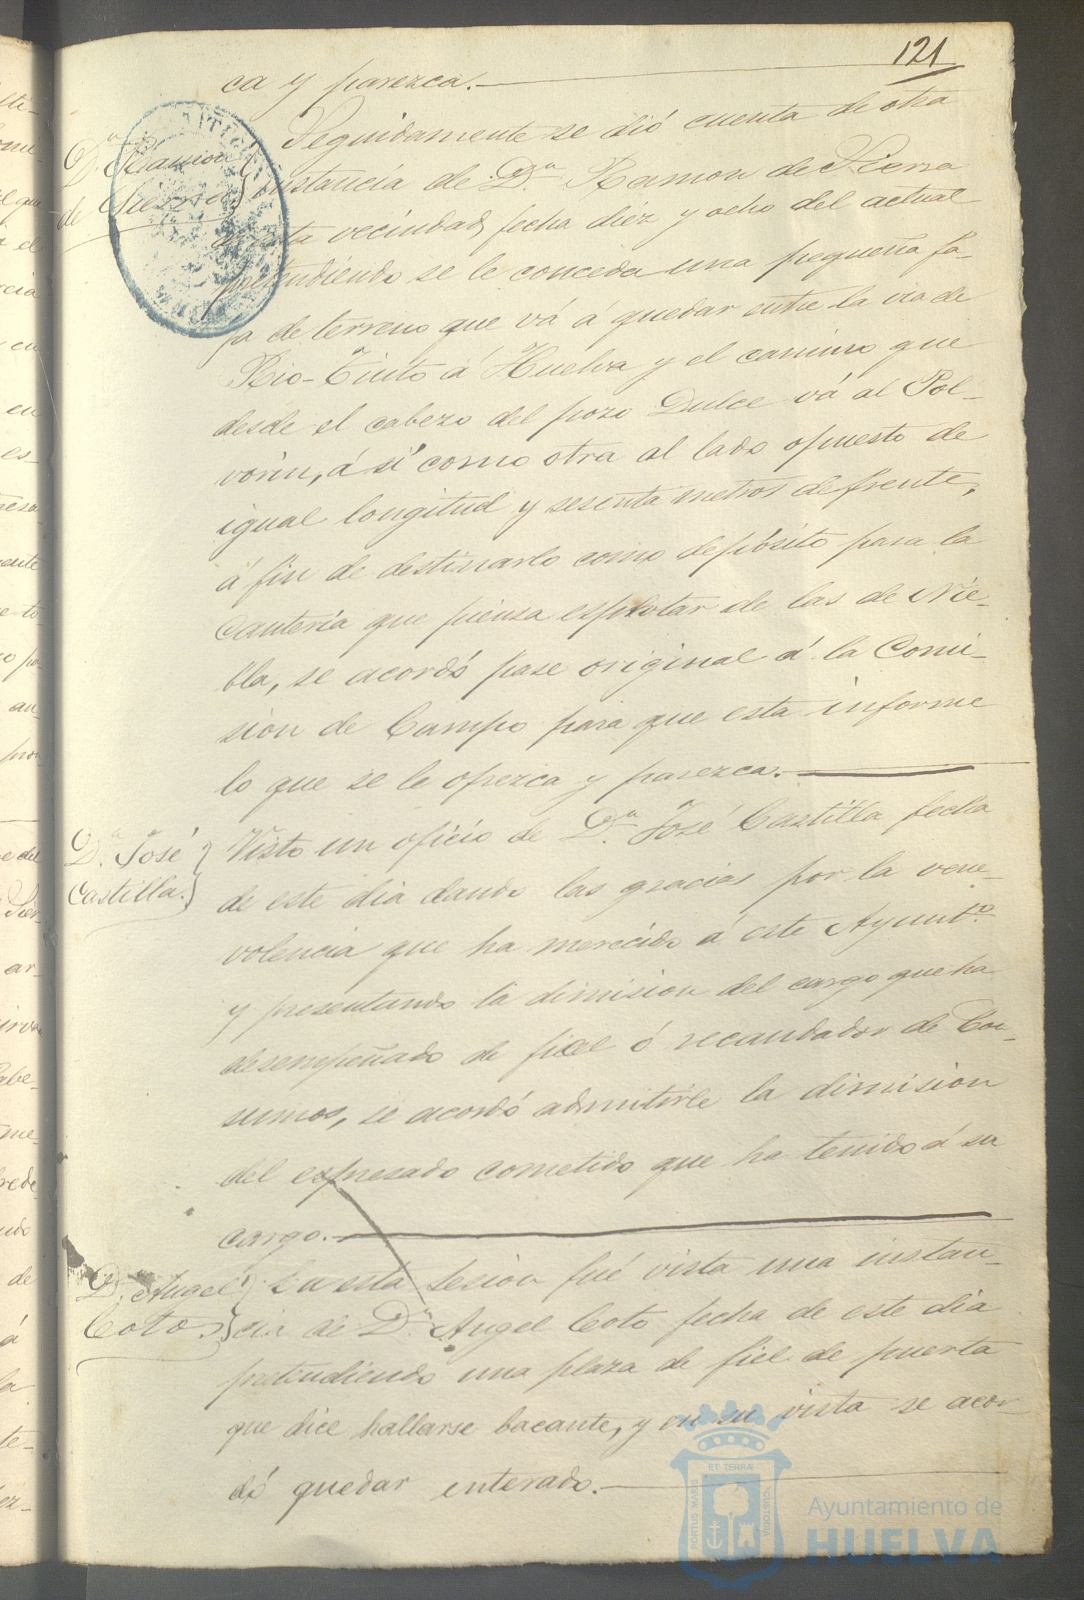 121
ca y parezca.
Seguidamente se dió cuenta de otra
Dn. Ramon
de
instancia de Dn. Ramon de Sierra
de esta vecindad, fecha diez y ocho del actual
pretendiendo se le conceda una pequeña fa-
ja de terreno que vá á quedar entre la via de
Rio-Tinto á Huelva y el camino que
desde el cabezo del pozo Dulce vá al Pol-
vorin, á sí como otra al lado opuesto de
igual longitud y sesenta metros de frente,
á fin de destinarlo como depósito para la
Cantería que piensa esplotar de las de Nie-
bla, se acordó pase original á la Comi-
sion de Campo para que esta informe
lo que se le ofrezca y parezca.
Dn. José
Castilla.
Visto un oficio de Dn. José Castilla fecha
de este dia dando las gracias por la vene-
volencia que ha merecido á este Ayuntº.
y presentando la dimision del cargo que ha
desempeñado de fiel ó recaudador de Con-
sumos, se acordó admitirle la dimision
del espresado cometido que ha tenido á su
cargo.
Dn. Angel
Coto
En esta sesion fué vista una instan-
cia de Dn. Angel Coto fecha de este dia
pretendiendo una plaza de fiel de puerta
que dice hallarse bacante, y en su vista se acor-
dó quedar enterado.
PORTUS MARIS ET TERRÆ CUSTODIA
Ayuntamiento de
HUELVA